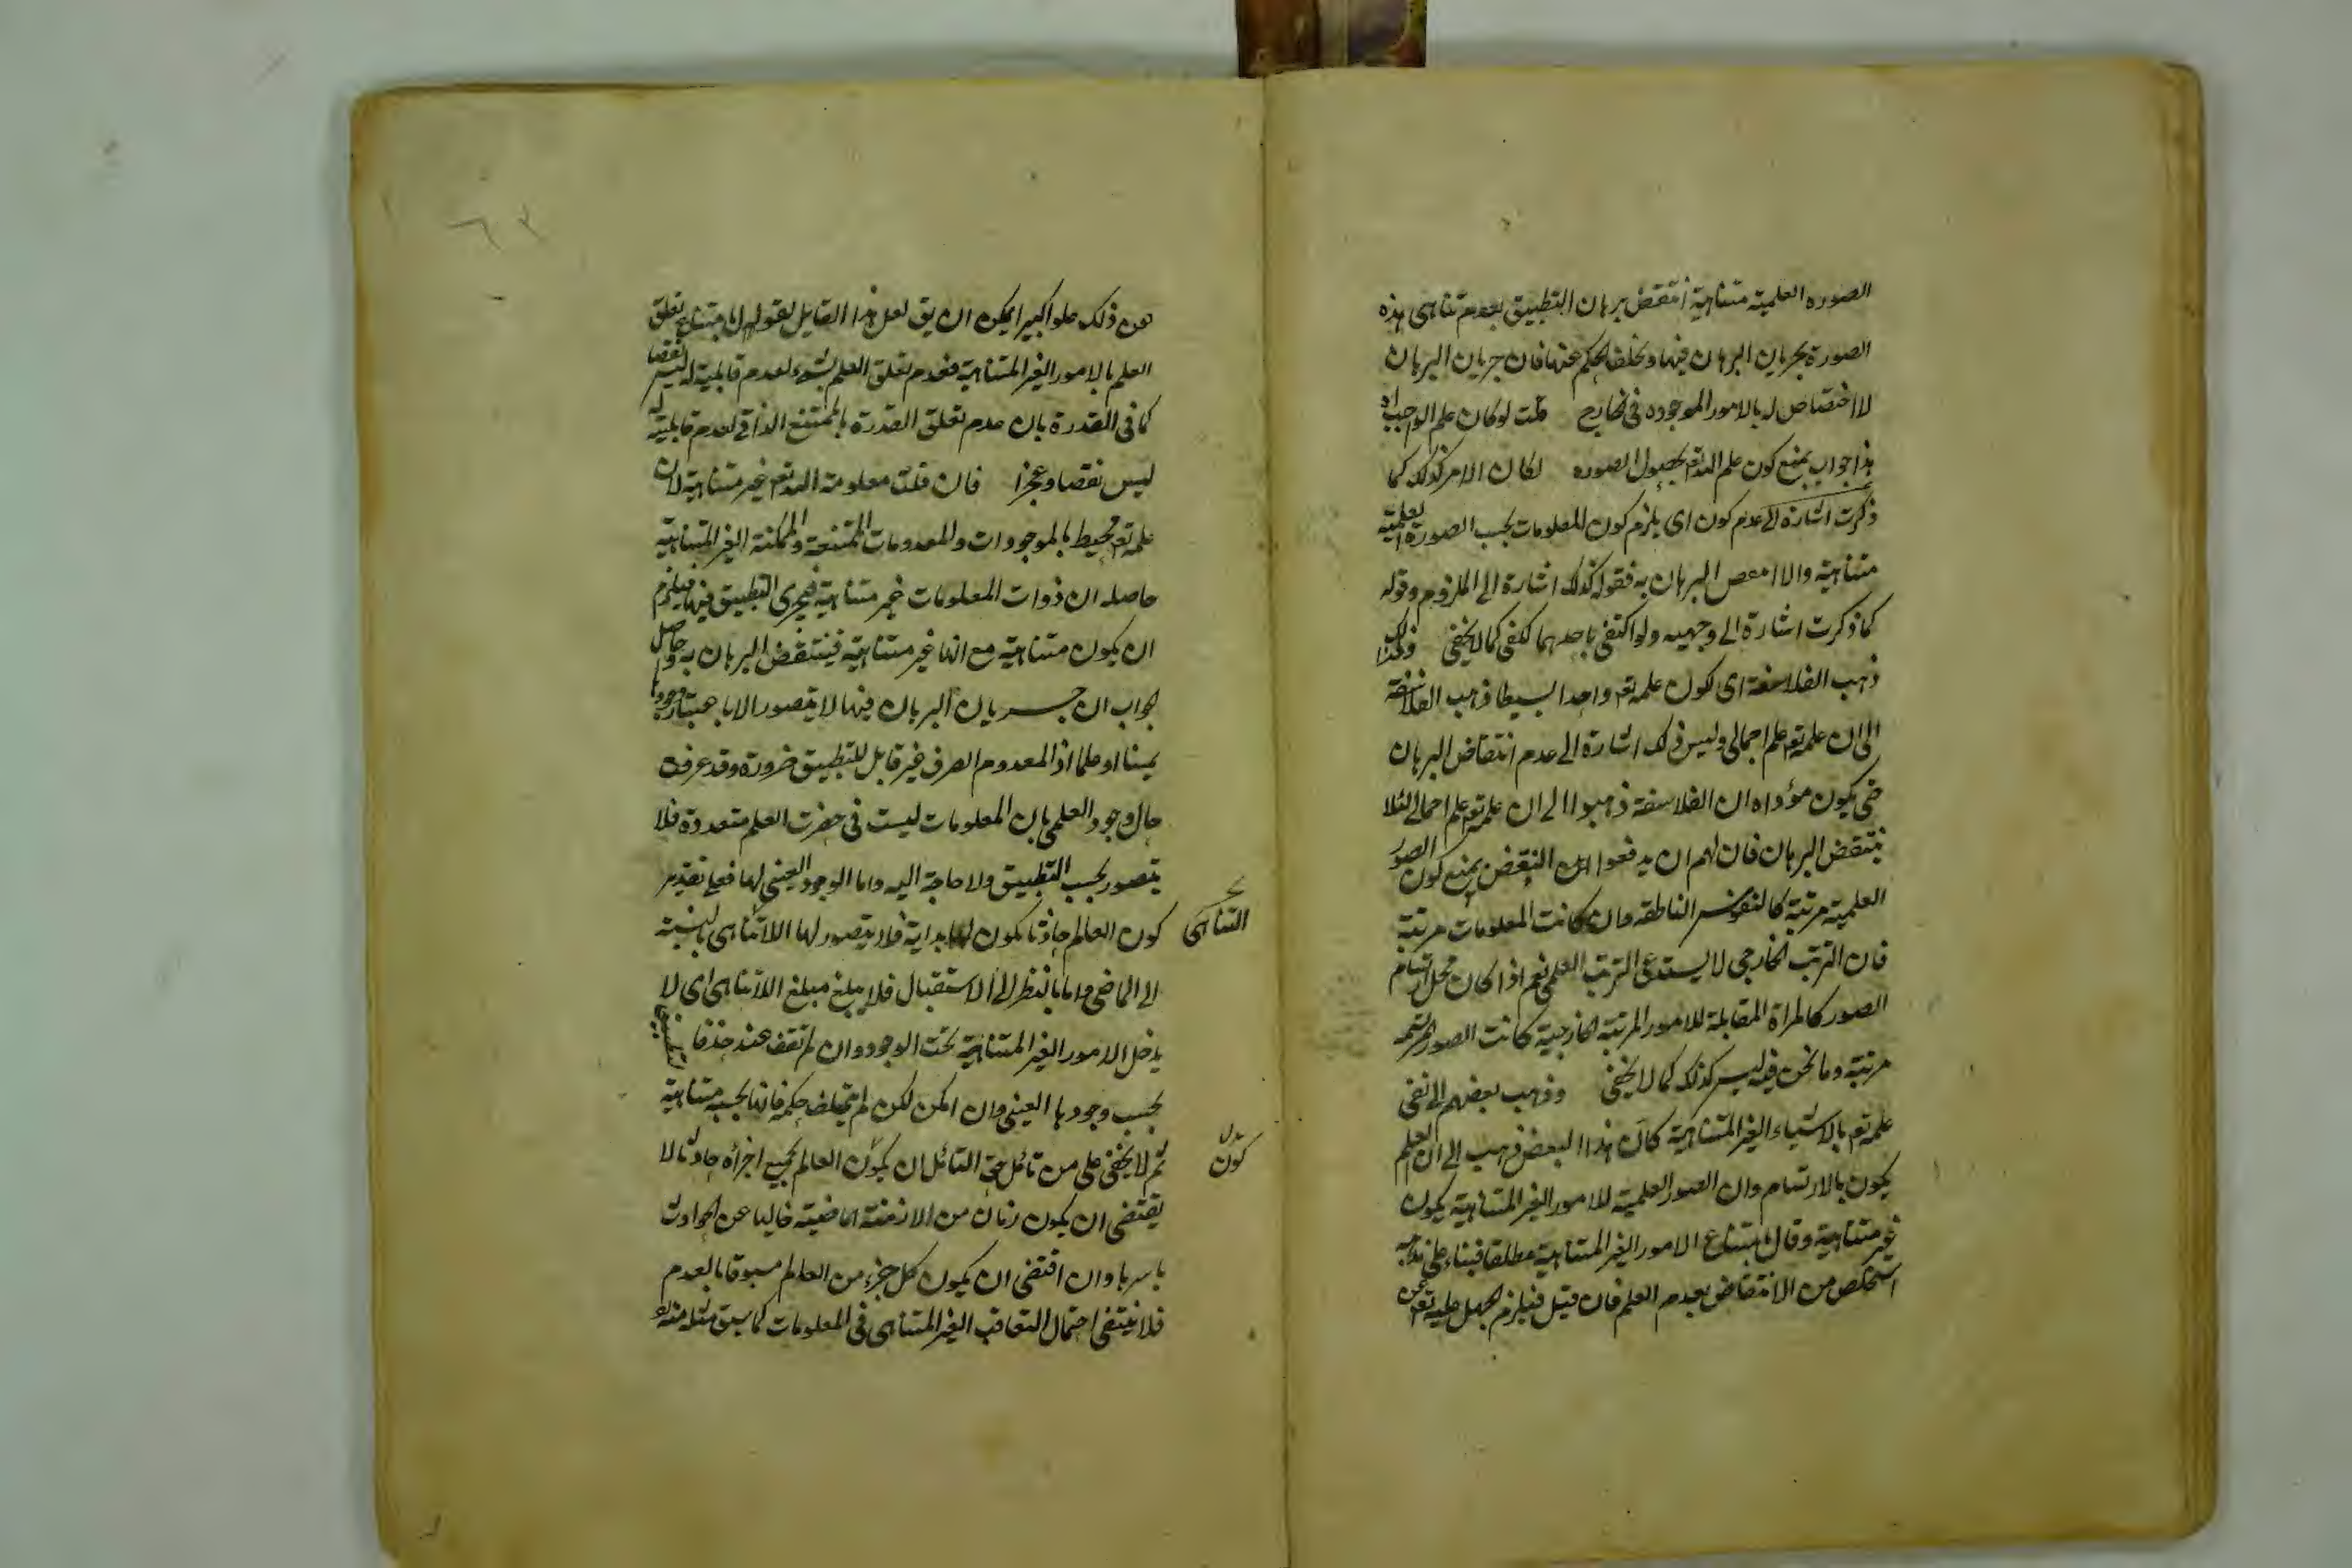 الصوره العلمية متناهية انتقض برهان التطبيق بعدم تناهى هذه
الصورة بجريان البرهان فيها وتخلف الحكم عنها فان جريان البرهان
لا اختصاص له بالامور الموجوده فى الخارج قلت لو كان علم الواجب اه
هذا جواب بمنع كون علم الله تع بحصول الصوره لكان الامر كذلك كما
ذكرت اشارة الى عدم كون اى يلزم كون المعلومات بحسب الصورة العلمية
متناهية والا البرهان به فقوله كذلك اشارة الى الملزوم وقوله
كما ذكرت اشارة الى وجهيه ولو اكتفى باحدهما لكفى كما لا يخفى ولذلك
ذهب الفلاسفة اى لكون علمه تع واحدا بسيطا ذهب الفلاسفة
الى ان علمه تع علم اجمالى وليس ذلك اشارة الى عدم انتقاض البرهان
حتى يكون مؤداه ان الفلاسفة ذهبوا الى ان علمه تع علم اجمالى لئلا
ينتقض البرهان فان لهم ان يدفعوا النقض بمنع كون الصور
العلمية مرتبة كالنفوس الناطقه وان كانت المعلومات مرتبة
فان الترتب الخارجى لا يستدعى الترتب العلمى نعم اذا كان محل ارتسام
الصور كالمراة المقابلة للامور المرتبة الخارجية كانت الصور المرتسمه
مرتبة وما نحن فيه ليس كذلك كما لا يخفى وذهب بعضهم الى نفى
علمه تع بالاشياء الغير المتناهية كان هذا البعض ذهب الى ان العلم
يكون بالارتسام وان الصور العلمية للامور الغير المتناهية يكون
غير متناهية وقال بامتناع الامور الغير المتناهية مطلقا فبناء على مذهبه
استخلص من الانتقاض بعدم العلم فان قيل فيلزم الجهل عليه تع عن
عن ذلك علوا كبيرا يمكن ان يق لعل هذا القايل لقوله بامتناع تعلق
العلم بالامور الغير المتناهية فعدم تعلق العلم بشىء لعدم قابليته له ليس نقصا
كما فى القدرة بان عدم تعلق القدرة بالممتنع الذاتى لعدم قابليته له
ليس نقصا وعجزا فان قلت معلومة الله تع غير متناهية لان
علمه تع محيط بالموجودات والمعدومات الممتنعة والممكنة الغير المتناهية
حاصله ان ذوات المعلومات غير متناهية فيجرى التطبيق فيها فيلزم
ان يكون متناهية مع انها غير متناهية فينتقض البرهان به وحاصل
الجواب ان جريان البرهان فيها لا يتصور الا باعتبار وجودها
عينا او علما اذ المعدوم الصرف غير قابل للتطبيق ضرورة وقد عرفت
حال وجود العلمى بان المعلومات ليست فى حضرت العلم متعددة فلا
يتصور بحسبه التطبيق ولا حاجة اليه واما الوجود العينى لها فعلى تقدير
كون العالم حادثا يكون لها بداية فلا يتصور لها اللاتناهى بالنسبة
التناهى
الى الماضى واما بالنظر الى الاستقبال فلا يبلغ مبلغ اللاتناهى اى لا
يدخل الامور الغير المتناهية تحت الوجود وان لم تقف عند حد فالتطبيق
بحسب وجودها العينى وان امكن لكن لم يتخلف حكمه فانها بحسبه متناهية
ثم لا يخفى على من تامل حق التامل ان يكون العالم بجميع اجزائه حادثا لا
بدل
كون
يقتضى ان يكون زمان من الازمنة الماضية خاليا عن الحوادث
باسرها وان اقتضى ان يكون كل جزء من العالم مسبوقا بالعدم
فلا ينتفى احتمال التعاقب الغير المتناهى فى المعلومات كما سبق مثله منه